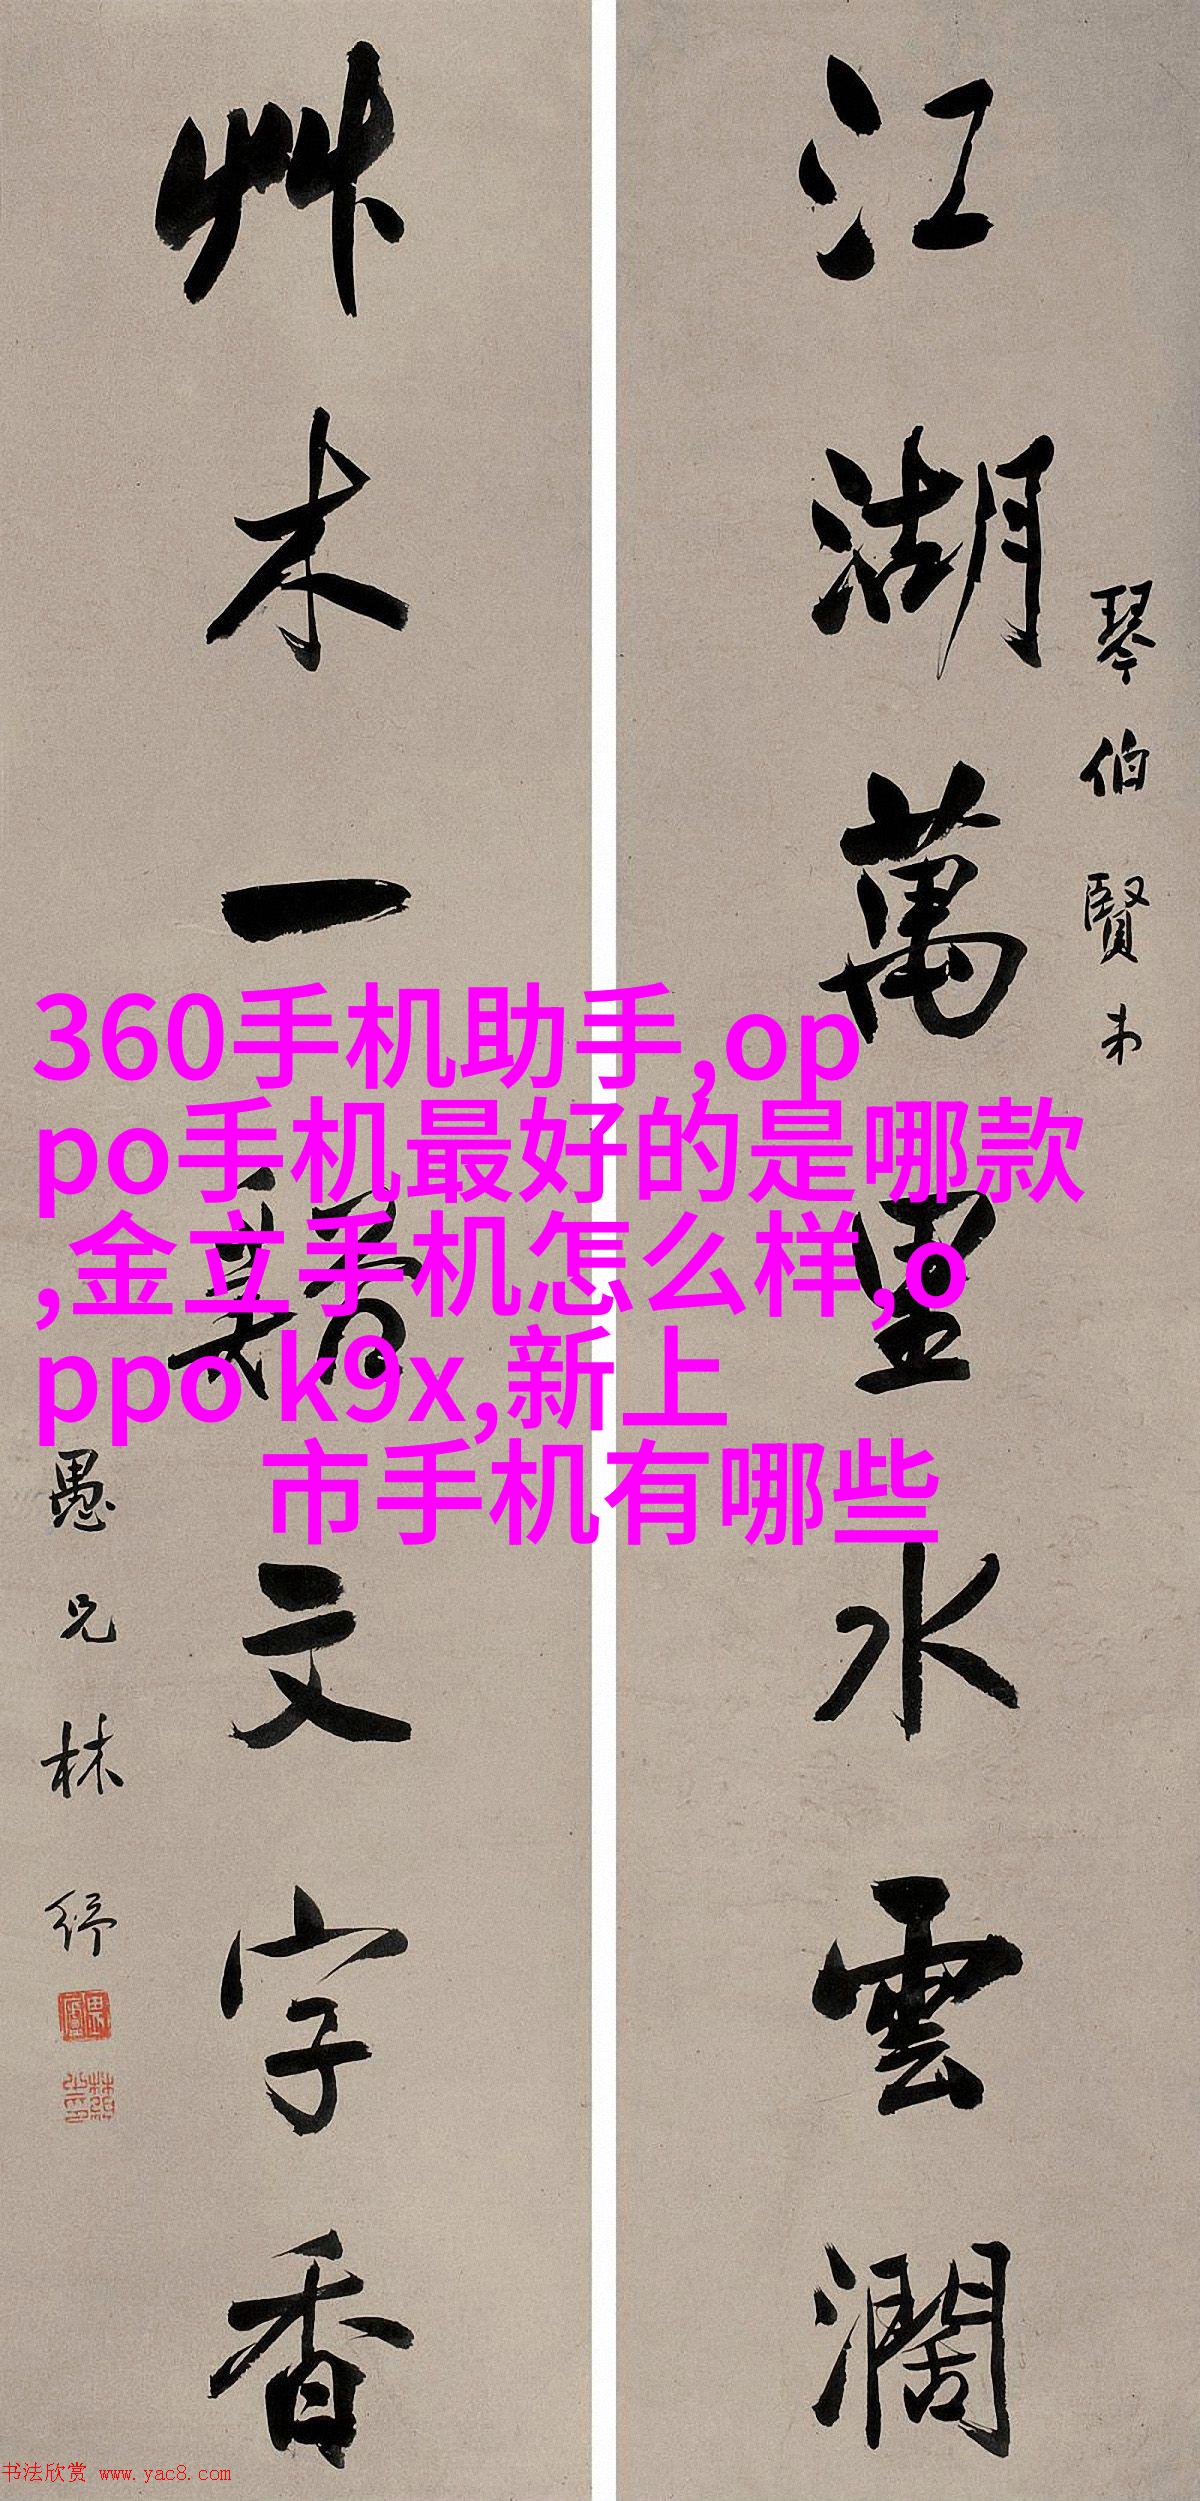 江湖萬里水雲濶
琴伯賢弟
艸木一蘓文字香
愚兄林紓
360手机助手,op
po手机最好的是哪款
,金立手机怎么样,o
ppo k9x,新上
市手机有哪些
书法欣赏 www.yac8.com